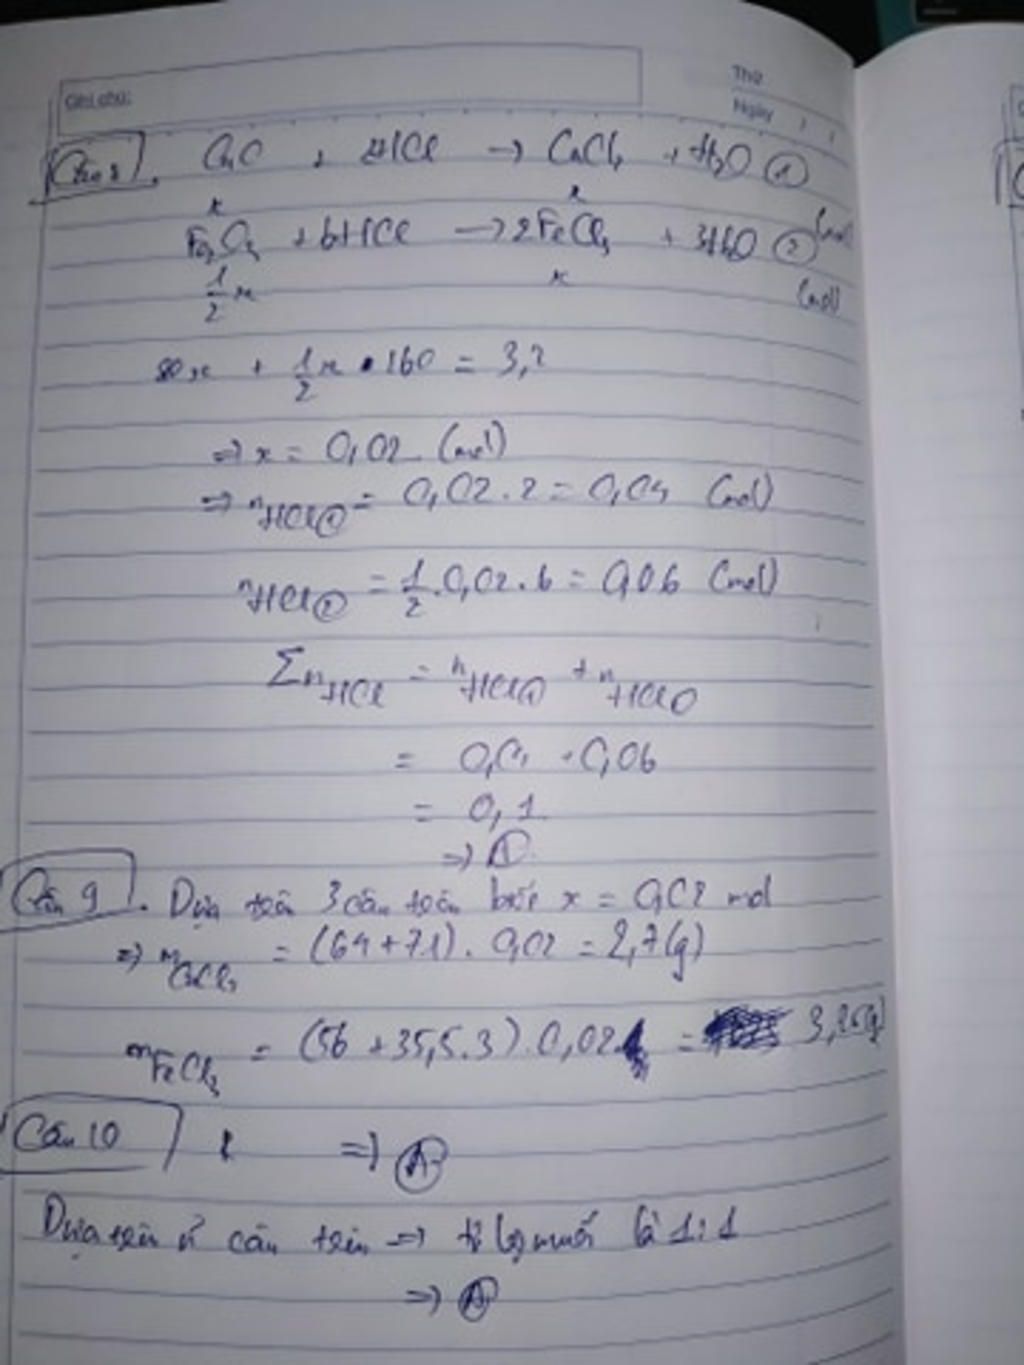 Ghi chú:
Thứ
Ngày / /
Câu 8. CuO + 2HCl → CuCl₂ + H₂O ①
x x (mol)
Fe₂O₃ + 6HCl → 2FeCl₃ + 3H₂O ②
1/2 x x (mol)
80x + 1/2 x . 160 = 3,2
⇒ x = 0,02 (mol)
⇒ nHCl① = 0,02 . 2 = 0,04 (mol)
nHCl② = 1/2 . 0,02 . 6 = 0,06 (mol)
ΣnHCl = nHCl① + nHCl
= 0,04 + 0,06
= 0,1
⇒ Ⓐ
Câu 9. Dựa trên 3 câu trên x = 0,02 mol
⇒ mCuCl₂ = (64 + 71) . 0,02 = 2,7 (g)
mFeCl₃ = (56 + 35,5.3) . 0,02 = 3,25 (g)
Câu 10 ⇒ Ⓐ
Dựa trên câu trên ⇒ tỉ lệ muối là 1 : 1
⇒ Ⓐ